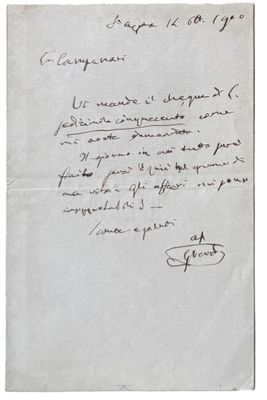 S. Agata 12 Ott. 1900
Campanari
Vi mando il cheque di L.
sedicimila cinquecento come
mi avete domandato.
Il giorno in cui tutto sarà
finito sarà il più bel giorno di
mia vita. Gli affari mi sono
insopportabili! —
Saluti
G. Verdi